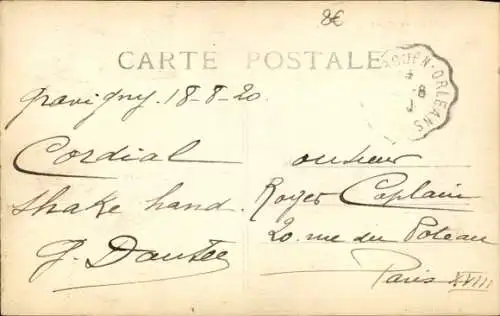 8€
CARTE POSTALE
ROUEN-ORLÉANS
4
-8
Gravigny 18-8-20.
Cordial
shake hand.
J. Dautée
Monsieur
Roger Caplain
20. rue du Poteau
Paris XVIII